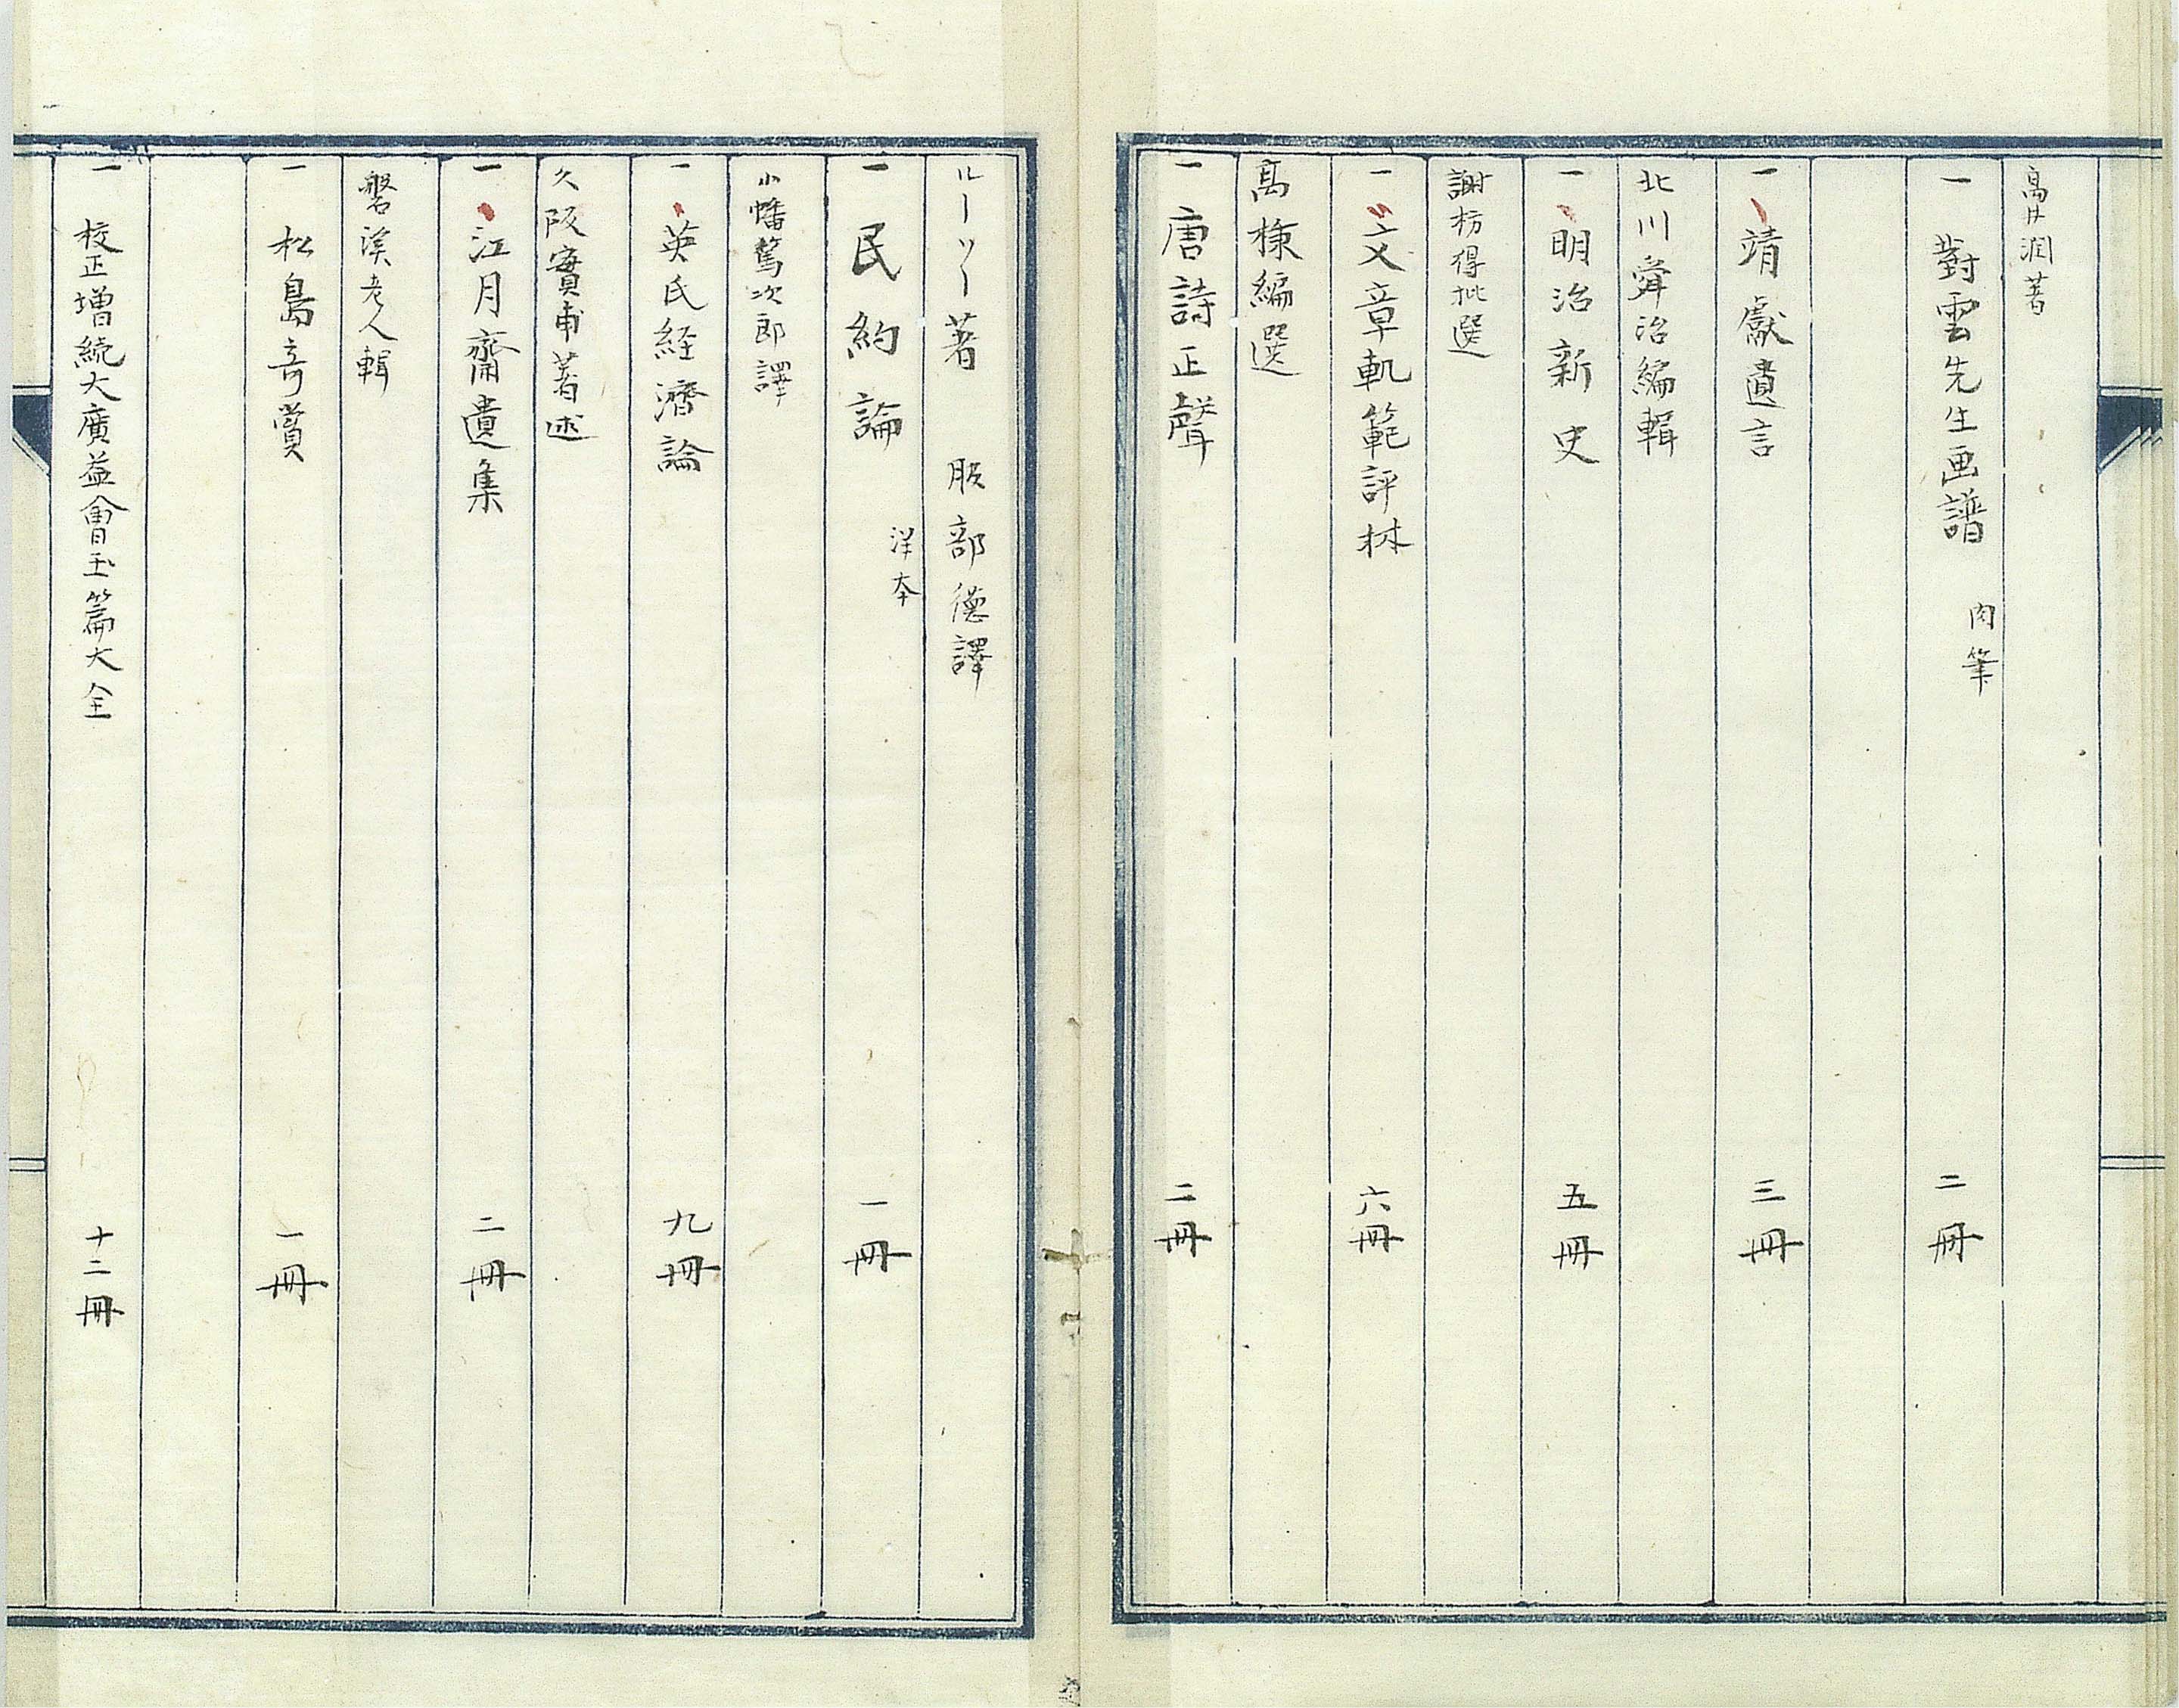 高井潤著
一 對雲先生画譜 肉筆 二冊
一 靖獻遺言 三冊
北川舜治編輯
一 明治新史 五冊
謝枋得批選
一 文章軌範評林 六冊
高棅編選
一 唐詩正聲 二冊
ルーソー著 服部德譯
一 民約論 洋本 一冊
小幡篤次郎譯
一 英氏経濟論 九冊
久阪實甫著述
一 江月齋遺集 二冊
磐渓老人輯
一 松島奇賞 一冊
一 校正増続大廣益會玉篇大全 十二冊